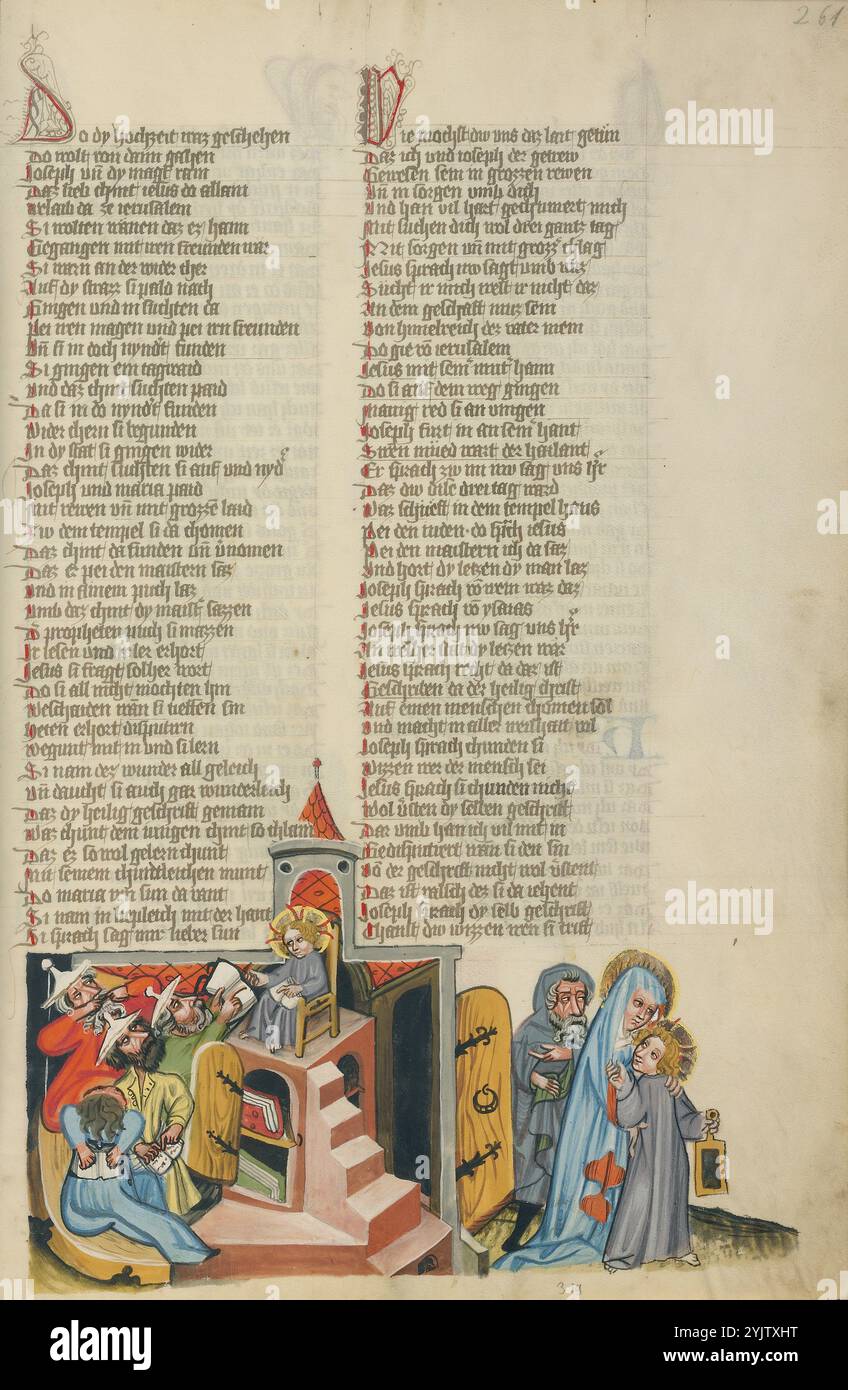 261
Do dy hochzeit waz geschehen
Do wolt von dann gahen
Joseph vnd dy magt rain
Daz lieb chint iesus da allain
Belaib da ze ierusalem
Si wolten wänen daz ez haim
Gegangen mit iren freunden war
Si warn an der wider cher
Auf dy strazz si pald nach
Giengen und in suchten da
Pei iren magen und pei irn freunden
Vnd si in doch nyndert funden
Si gingen ein tagwaid
Und daz chint suchten paid
Da si in do nyndert funden
Wider chern si begunden
In dy stat si gingen wider
Daz chint suchten si auf und nyder
Joseph und maria paid
Mit rewen vnd mit grozzem laid
Zw dem tempel si da chomen
Daz chint da funden si vnd vernomen
Daz ez pei den maistern saz
Und in ainem puch laz
Umb daz chint dy maister sazzen
Der propheten puch si mazzen
Ir lesen und ir ler erhort
Jesus si fragt solher wort
Do si all nicht mochten im
Beschaiden wann si tieffen sin
Heten erhort disputirn
Begunt mit in und si lern
Si nam dez wunder all geleich
Vnd daucht si auch gar wunderleich
Daz dy heilig geschrift gemain
Waz chunt dem iungen chint so chlain
Daz ez so wol gelern chunt
Mit seinem chindleichen munt
Do maria irn sun da vant
Si nam in liepleich mit der hant
Si sprach sag mir lieber sun
Wie mochst dw uns daz lait getun
Daz ich und ioseph der getrew
Gewesen sein in grozzen rewen
Vnd in sorgen umb dich
Und han vil hart gechumert mich
Mit suchen dich wol drei gantz tag
Mit sorgen vnd mit grozzer chlag
Jesus sprach nw sagt umb waz
Sucht ir mich west ir nicht daz
An dem geschäft muz sein
Von himelreich der vater mein
Do gie von ierusalem
Jesus mit seiner muter haim
Do si auf dem weg gingen
Manig red si an vingen
Joseph furt in an seiner hant
Swen mued wart der hailant
Er sprach zw im nw sag uns herr
Daz dw dise drei tag ward
Waz schueft in dem tempel haus
Pei den iuden do sprach iesus
Pei den maistern ich da saz
Und hort dy letzen dy man laz
Joseph sprach von wem waz daz
Jesus sprach von ysaias
Joseph sprach nw sag uns herr
In welher sach dy letzen wär
Jesus sprach recht da daz ist
Geschriben da der heilig christ
Auf einen menschen chomen sol
Und macht in aller weishait vol
Joseph sprach chunden si
Wizzen wer der mensch sei
Jesus sprach si chunden nicht
Wol versten dy selben geschrift
Dar umb han ich vil mit in
Gedisputiert wann si den sin
Von der geschrift nicht wol versteent
Daz ist valsch dez si da iehent
Joseph sprach dy selb geschrift
Chanst dw wizzen wen si trift
alamy
Image ID: 2YJTXHT
www.alamy.com